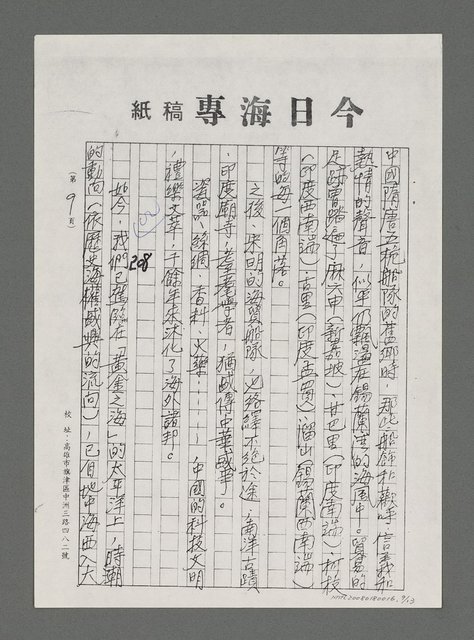 今日海專稿紙
中國隋唐五桅船隊的舊鄉時，那些船舶北歡呼，信義和
熱情的聲音，似乎仍飄盪在錫蘭港的海風中。貿易的
足跡曾踏遍了麻六甲（新嘉坡）、甘巴里（印度南端）、柯枝
（印度西南端）、古里（印度孟買）、溜山（錫蘭西南端）
等的每一個角落。
之後，宋明的海貿船隊，也絡繹不絕於途，南洋古蹟
、印度廟寺，耆耆學者，猶盛傳中華盛事。
瓷器、絲綢、香料、火藥……，中國的科技文明
，禮樂文萃，千餘年來沐化了海外諸邦。
如今，我們已舊臨在「黃金之海」的太平洋上，時潮
208
的動向（依歷史海權盛興的流向），已自地中海西入大
（第 9 頁）
校 址：高雄市旗津區中洲三路四八二號
NMTL20080180016, 9/23